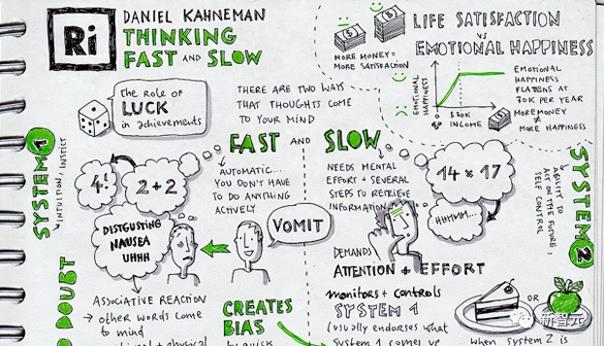 Ri
DANIEL KAHNEMAN
THINKING
FAST AND SLOW
The role of
LUCK
in achievements
THERE ARE TWO WAYS
THAT THOUGHTS COME
TO YOUR MIND
LIFE SATISFACTION
vs
EMOTIONAL HAPPINESS
MORE MONEY =
MORE SATISFACTION
EMOTIONAL
HAPPINESS
INCOME
EMOTIONAL
HAPPINESS
FLATTENS AT
70K PER YEAR
MORE MONEY
≠
MORE HAPPINESS
FAST AND SLOW
SYSTEM 1
INTUITION, INSTINCT
4!
2+2
AUTOMATIC...
YOU DON'T HAVE
TO DO ANYTHING
ACTIVELY
DISTGUSTING
NAUSEA
UHHH
VOMIT
ASSOCIATIVE REACTION
→ other words come
to mind
CREATES
BIAS
DOUBT
NEEDS MENTAL
EFFORT + SEVERAL
STEPS TO RETRIEVE
INFORMATION
14 × 17
HHMM...
DEMANDS
ATTENTION + EFFORT
monitors + controls
SYSTEM 1
(usually endorses what
system 1 comes up
SYSTEM 2
ABILITY TO
ACT ON THE FUTURE,
SELF CONTROL
OR
when system 2 is
新智元